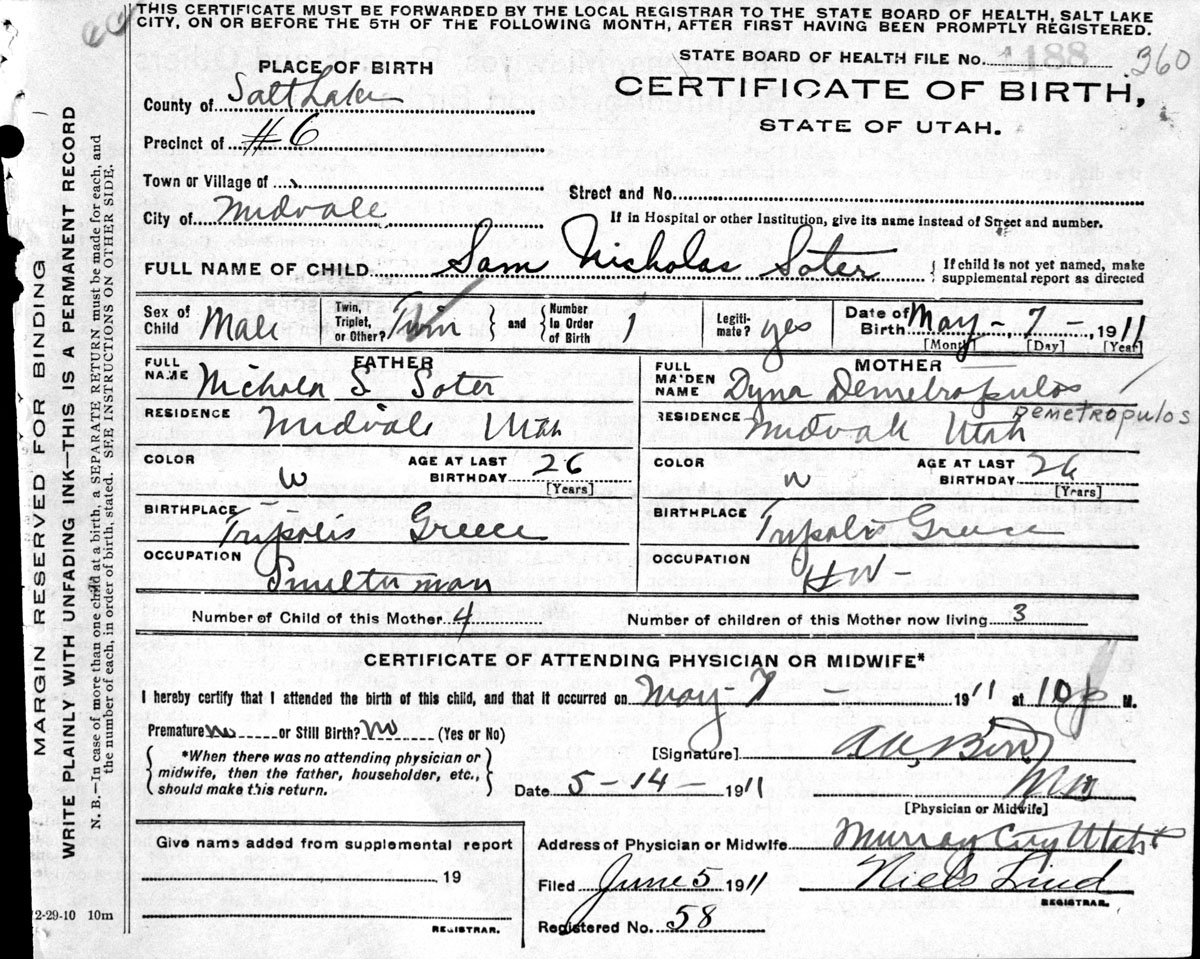 THIS CERTIFICATE MUST BE FORWARDED BY THE LOCAL REGISTRAR TO THE STATE BOARD OF HEALTH, SALT LAKE
CITY, ON OR BEFORE THE 5TH OF THE FOLLOWING MONTH, AFTER FIRST HAVING BEEN PROMPTLY REGISTERED.
STATE BOARD OF HEALTH FILE No. 1188 360
PLACE OF BIRTH
CERTIFICATE OF BIRTH,
STATE OF UTAH.
County of Salt Lake
Precinct of #6
Town or Village of
Street and No.
City of Midvale
If in Hospital or other Institution, give its name instead of Street and number.
FULL NAME OF CHILD Sam Nicholas Soter { If child is not yet named, make supplemental report as directed
Sex of Child Male Twin, Triplet, or Other? Twin } and { Number In Order of Birth 1 Legiti-mate? yes Date of Birth May - 7 - 1911
[Month] [Day] [Year]
FATHER MOTHER
FULL NAME S Soter FULL MAIDEN NAME Dyna Demetropulos
Demetropulos
RESIDENCE Midvale Utah RESIDENCE Midvale Utah
COLOR W AGE AT LAST BIRTHDAY 26 [Years] COLOR W AGE AT LAST BIRTHDAY 26 [Years]
BIRTHPLACE Tripolis Greece BIRTHPLACE Tripolis Greece
OCCUPATION Smelterman OCCUPATION HW -
Number of Child of this Mother 4 Number of children of this Mother now living 3
CERTIFICATE OF ATTENDING PHYSICIAN OR MIDWIFE*
I hereby certify that I attended the birth of this child, and that it occurred on May - 7 - 1911 at 10 p M.
Premature no or Still Birth? no (Yes or No)
*When there was no attending physician or
midwife, then the father, householder, etc.,
should make this return.
[Signature]
Date 5 - 14 - 1911 MD
[Physician or Midwife]
Give name added from supplemental report
19
REGISTRAR.
Address of Physician or Midwife Murray City Utah
Filed June 5 1911 Niels Lind
REGISTRAR.
Registered No. 58
2-29-10 10m
MARGIN RESERVED FOR BINDING
WRITE PLAINLY WITH UNFADING INK—THIS IS A PERMANENT RECORD
N. B.—In case of more than one child at a birth, a SEPARATE RETURN must be made for each, and
the number of each, in order of birth, stated. SEE INSTRUCTIONS ON OTHER SIDE.